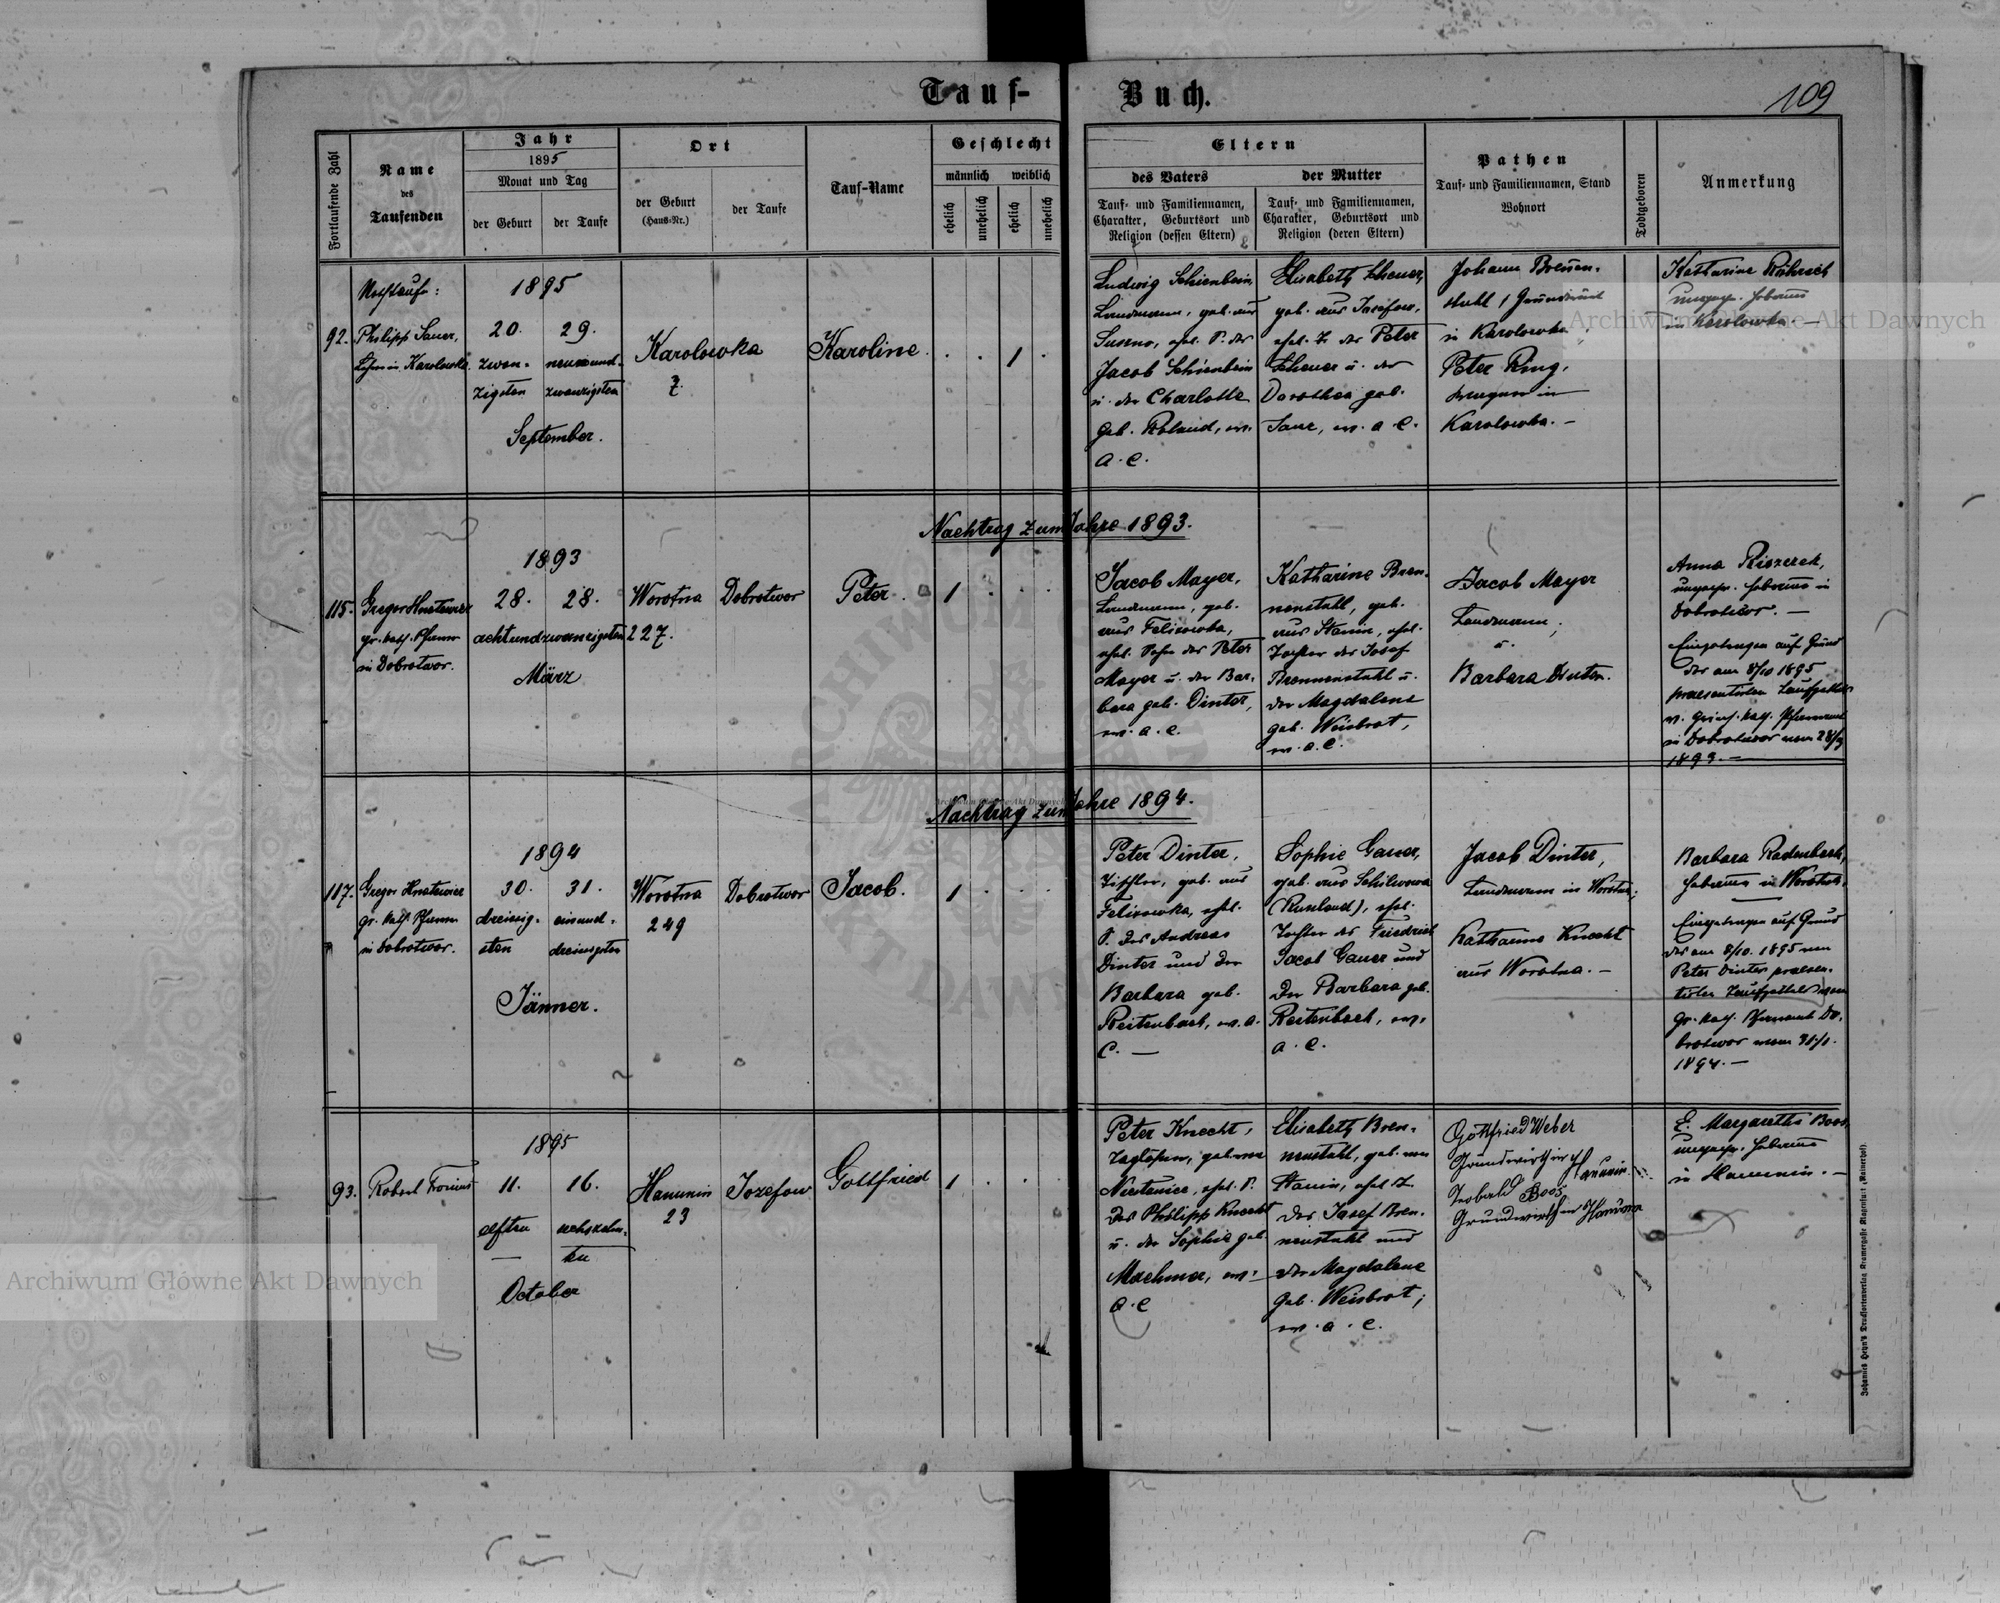 Tauf-Buch.
109
Fortlaufende Zahl
Name
des
Taufenden
Jahr
1895
Monat und Tag
der Geburt
der Taufe
Ort
der Geburt
(Haus-Nr.)
der Taufe
Tauf-Name
Geschlecht
männlich
weiblich
ehelich
unehelich
ehelich
unehelich
Eltern
des Vaters
Tauf- und Familiennamen,
Charakter, Geburtsort und
Religion (dessen Eltern)
der Mutter
Tauf- und Familiennamen,
Charakter, Geburtsort und
Religion (deren Eltern)
Pathen
Tauf- und Familiennamen, Stand
Wohnort
Todtgeboren
Anmerkung
92.
Nothtaufe:
Philipp Sauer,
in Karolowka
1895
20.
zwan-
zigsten
29.
neunund-
zwanzigsten
September.
Karolowka
7
Karoline
1
Ludwig Schienbein,
Landmann, geb. aus
Suszno, ehel. S. des
Jacob Schienbein
u. der Charlotte
geb. Roland, ev.
A. C.
Elisabeth Scheuer,
geb. aus Josefow,
ehel. T. des Peter
Scheuer u. der
Dorothea geb.
ev. a. C.
Johann Brennen-
stuhl, Grundwirt
in Karolowka;
Peter Ring,
in
Karolowka. –
Katharine Röhrich
ungepr. Hebamme
in Karolowka. –
Nachtrag zum Jahre 1893.
115.
Gregor Hnatewicz
gr. kath. Pfarrer
in Dobrotwor.
1893
28.
28.
achtundzwanzigsten
März
Worotna
227.
Dobrotwor
Peter.
1
Jacob Mayer,
Landmann, geb.
aus Felizowka,
ehel. Sohn des Peter
Mayer u. der Bar-
bara geb. Dinter,
ev. a. C.
Katharine Bren-
nenstuhl, geb.
aus Stanin, ehel.
Tochter des Josef
Brennenstuhl u.
der Magdalene
geb. Weisbrot,
ev. a. C.
Jacob Mayer
Landmann;
u.
Barbara Dinter.
Anna
ungepr. Hebamme in
Dobrotwor. –
Eingetragen auf Grund
des am 8/10 1895
praesentirten Taufzettels
v. griech. kath. Pfarramt
in Dobrotwor vom
1893. –
Nachtrag zum Jahre 1894.
117.
Gregor Hnatewicz
gr. kath. Pfarrer
in Dobrotwor.
1894
30.
dreissig-
sten
31.
einund-
dreissigsten
Jänner.
Worotna
249
Dobrotwor
Jacob.
1
Peter Dinter,
Tischler, geb. aus
Felizowka, ehel.
S. des Andreas
Dinter und der
Barbara geb.
Reitenbach, ev. A.
C. –
Sophie Gauer,
geb. aus
(Russland), ehel.
Tochter des Friedrich
Jacob Gauer und
der Barbara geb.
Reitenbach, ev.
a. C.
Jacob Dinter,
Landmann in Worotna;
Katharine Knecht
aus Worotna. –
Barbara Radenbach,
Hebamme in Worotna.
Eingetragen auf Grund
des am 8/10. 1895 von
Peter Dinter praesen-
tirten Taufzettels vom
gr. kath. Pfarramt Do-
brotwor vom 31/1.
1894. –
93.
Robert Fronius
1895
11.
elften
16.
sechszehn-
ten
October
Hanunin
23
Jozefow
Gottfried
1
Peter Knecht,
Taglöhner, geb. von
ehel. S.
des Philipp Knecht
u. der Sophie geb.
Machmer, ev.
a. C
Elisabeth Bren-
nenstuhl, geb. von
Stanin, ehel. T.
des Josef Bren-
nenstuhl und
der Magdalene
geb. Weisbrot;
ev. a. C.
Gottfried Weber
Grundwirth in Hanunin
Teobald Boos
Grundwirth in Hanunin
E. Margaretha Boos
ungepr. Hebamme
in Hanunin. –
Johannes Heyn's Drucksortenverlag Kramergasse Klagenfurt „Mainerhof".
Archiwum Główne Akt Dawnych
Archiwum Główne Akt Dawnych
Archiwum Główne Akt Dawnych